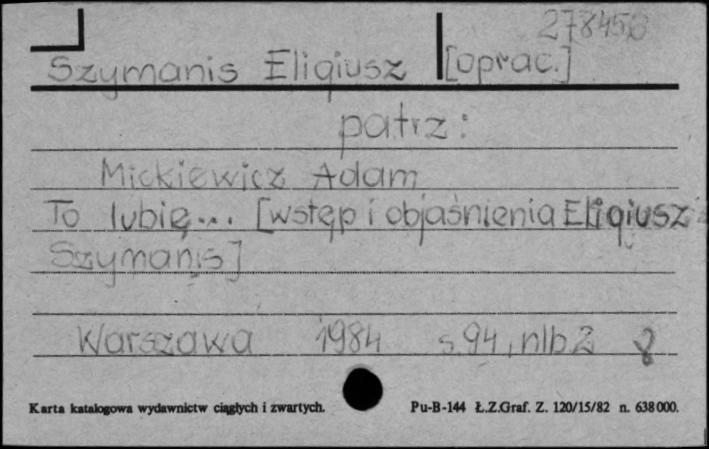 278458
Szymanis Eligiusz [oprac.]
patrz:
Mickiewicz Adam
To lubię... [wstęp i objaśnienia Eligiusz
Szymanis]
Warszawa 1984 s.94, nlb.2
Karta katalogowa wydawnictw ciągłych i zwartych. Pu-B-144 Ł.Z.Graf. Z. 120/15/82 n. 638000.